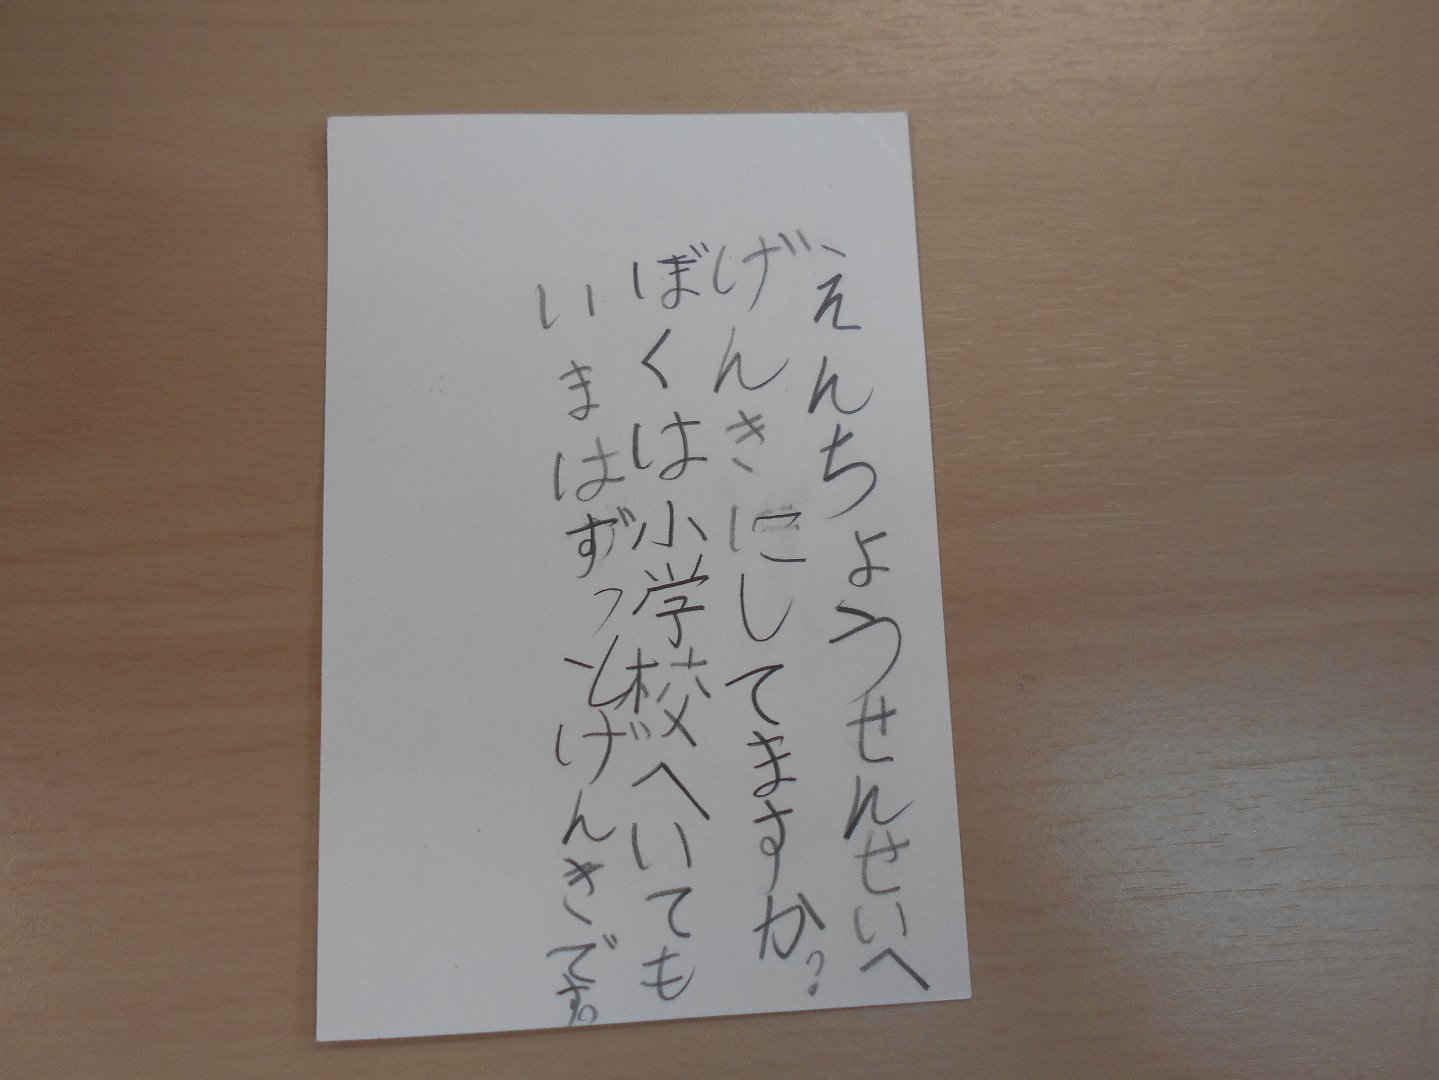 えんちょうせんせいへ
げんきにしてますか?
ぼくは小学校へいても
いまはずっとげんきです。